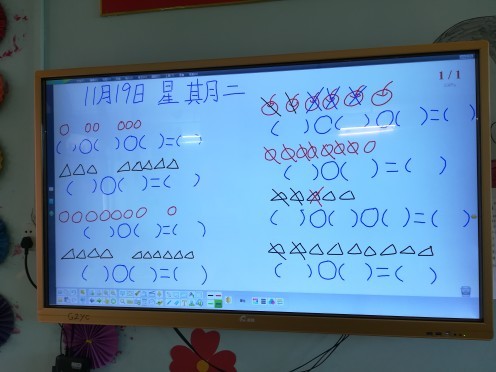 11月19日 星期二
1/1
( )○( )○( )=( )
( )○( )=( )
( )○( )=( )
( )○( )=( )
( )○( )○( )=( )
( )○( )=( )
( )○( )○( )=( )
( )○( )=( )